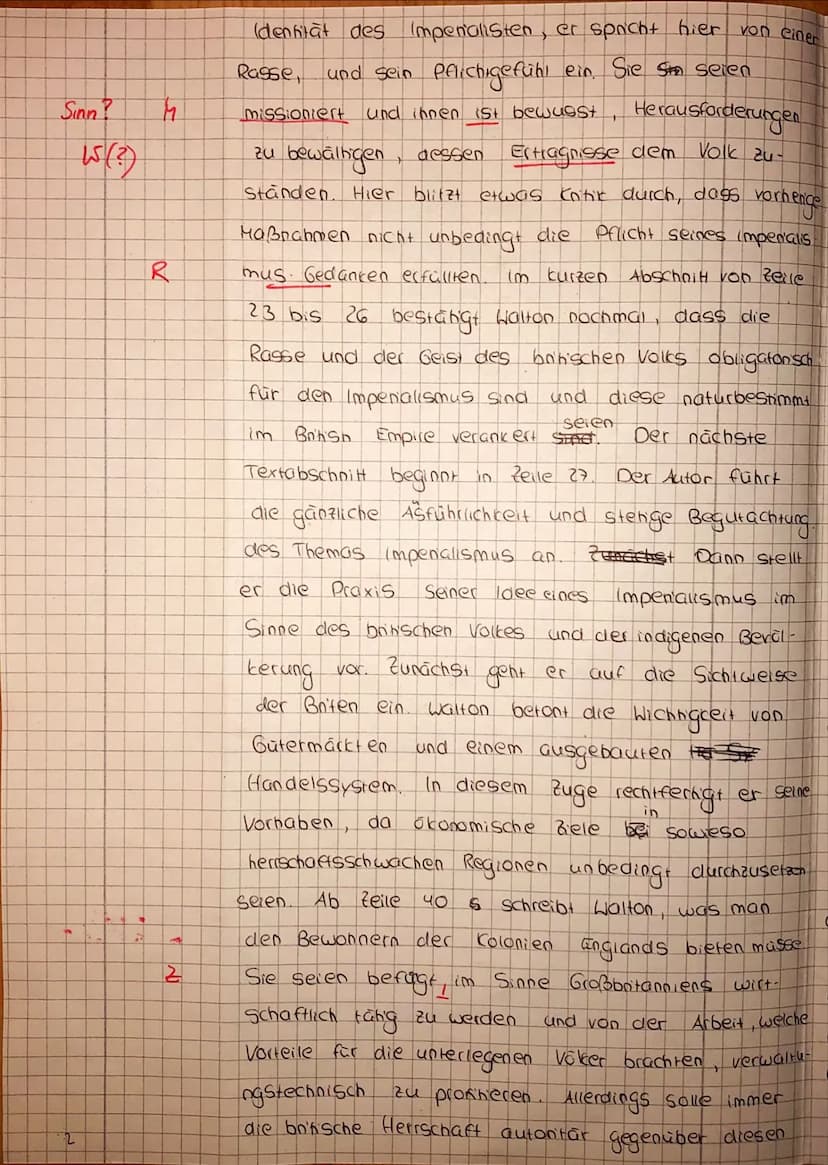 Identität des Imperialisten, er spricht hier von einer
Rasse, und sein Pflichtgefühl ein. Sie seien
Sinn? missioniert und ihnen ist bewusst, Herausforderungen
W(?) zu bewältigen, dessen Erträgnisse dem Volk zu-
ständen. Hier blitzt etwas Kritik durch, dass vorherige
Maßnahmen nicht unbedingt die Pflicht seines Imperialis
R mus-Gedanken erfüllten. Im kurzen Abschnitt von Zeile
23 bis 26 bestätigt Walton nochmal, dass die
Rasse und der Geist des britischen Volks obligatorisch
für den Imperialismus sind und diese naturbestimmt
im British Empire verankert seien. Der nächste
Textabschnitt beginnt in Zeile 27. Der Autor führt
die gänzliche Ausführlichkeit und stetige Begutachtung
des Themas Imperialismus an. Dann stellt
er die Praxis seiner Idee eines Imperialismus im
Sinne des britischen Volkes und der indigenen Bevöl-
kerung vor. Zunächst geht er auf die Sichtweise
der Briten ein. Walton betont die Wichtigkeit von
Gütermärkten und einem ausgebauten
Handelssystem. In diesem Zuge rechtfertigt er seine
Vorhaben, da ökonomische Ziele in soweso
herrschaftsschwachen Regionen unbedingt durchzusetzen
seien. Ab Zeile 40 schreibt Walton, was man
den Bewohnern der Kolonien Englands bieten müsse
Z Sie seien befugt, im Sinne Großbritanniens wirt-
schaftlich tätig zu werden und von der Arbeit, welche
Vorteile für die unterlegenen Völker brachten, verwaltu-
ngstechnisch zu profitieren. Allerdings solle immer
die britische Herrschaft autoritär gegenüber diesen
2